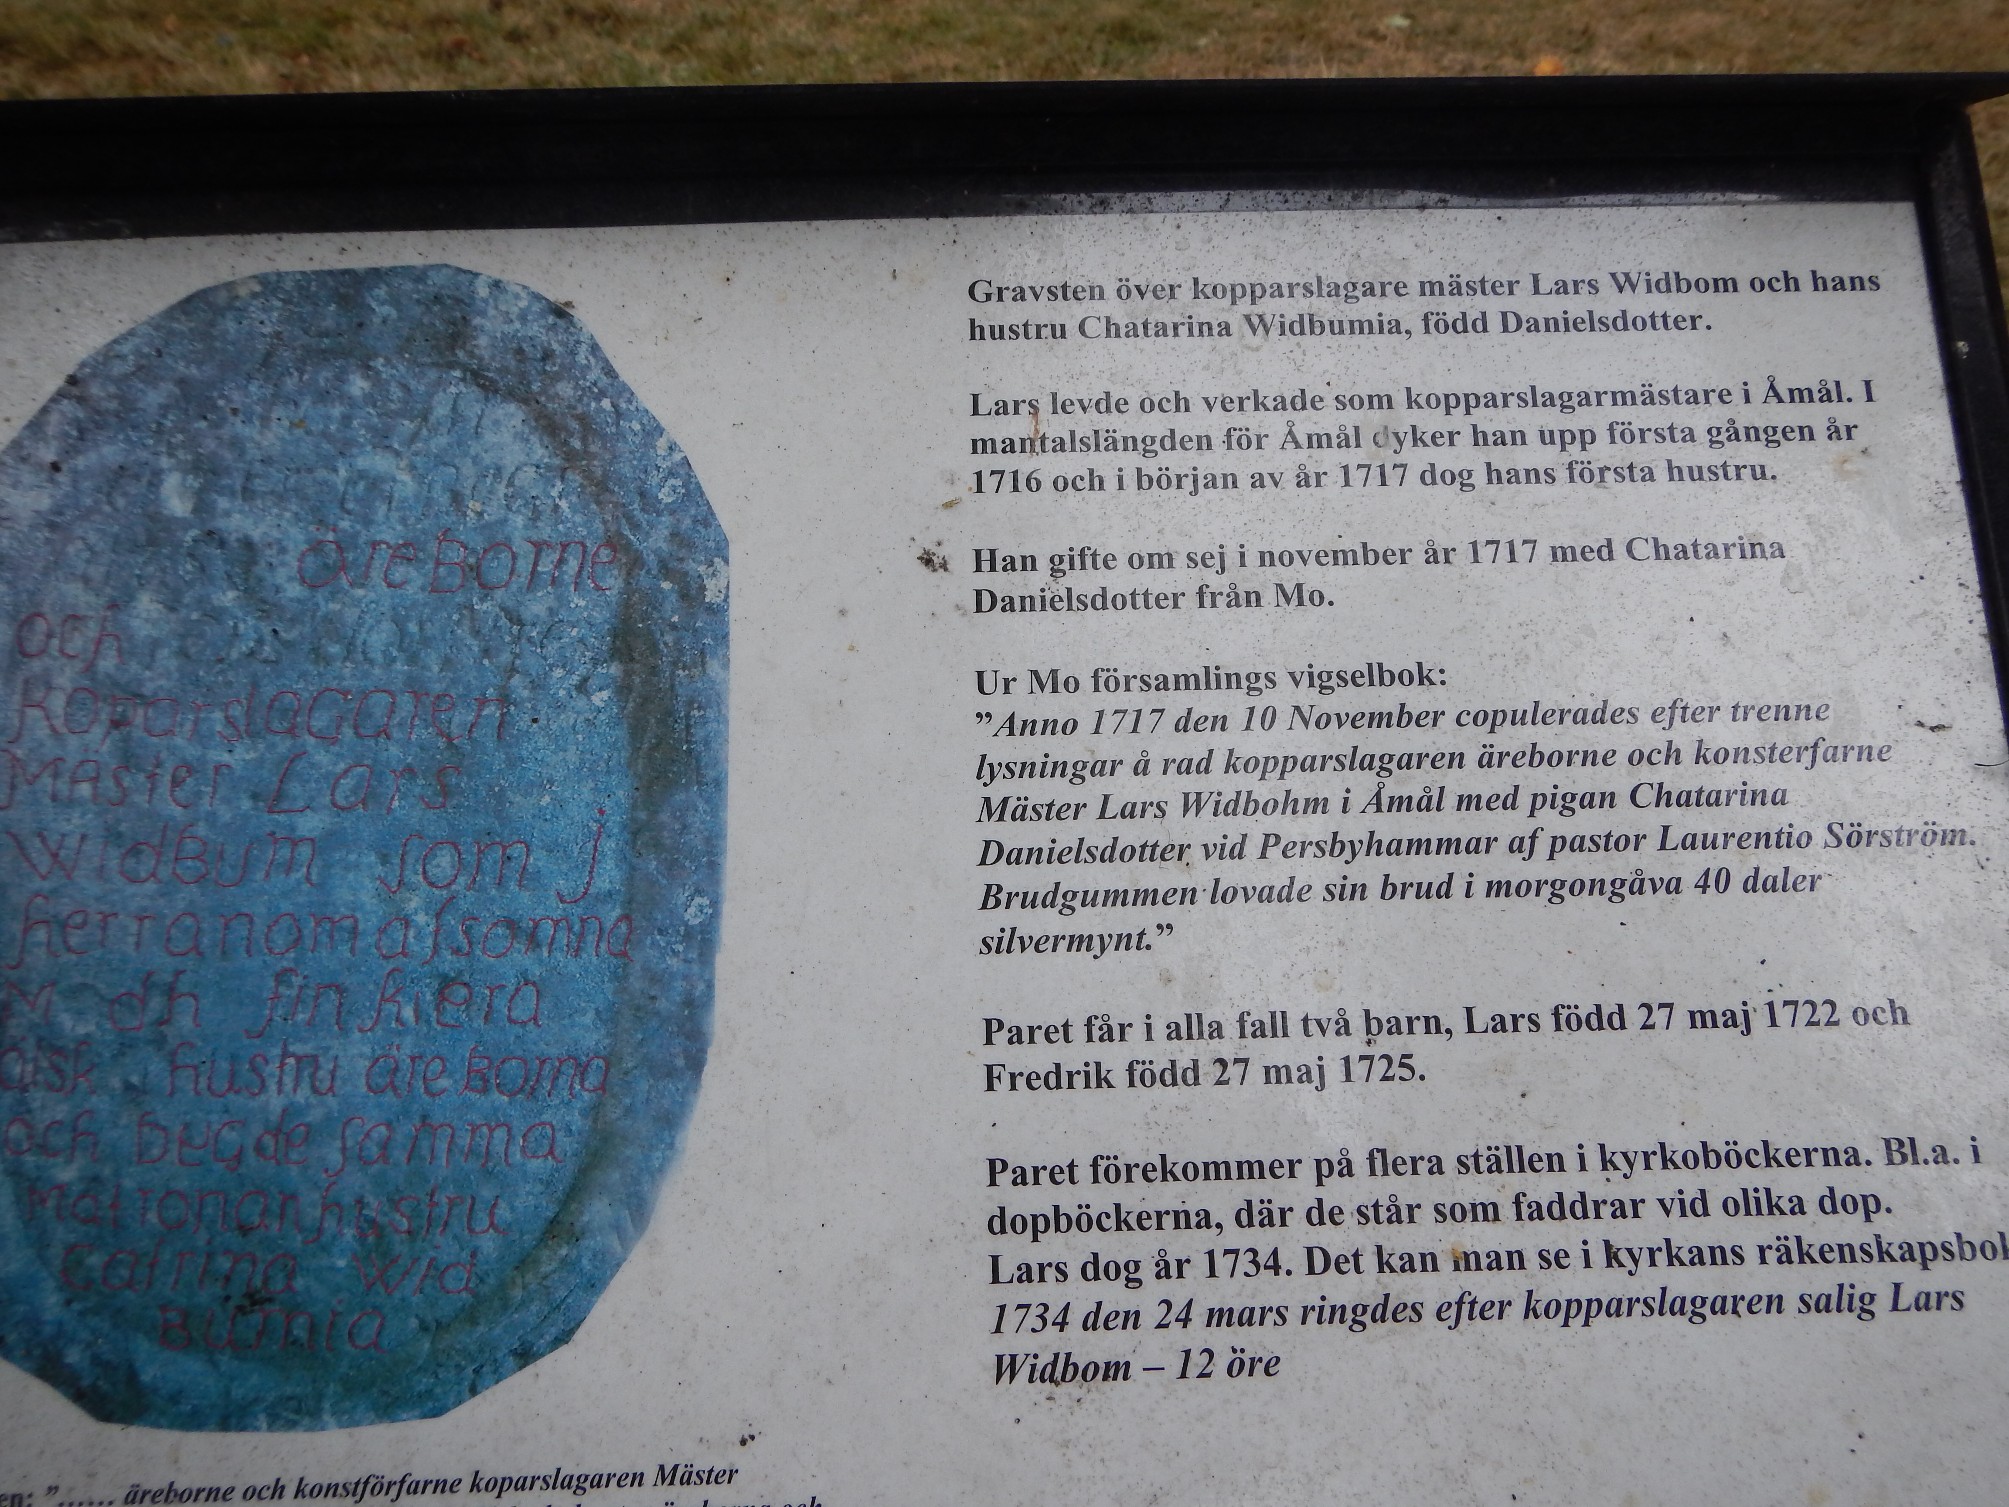 äreborne
och
koparslagaren
Mäster Lars
Widbum som j
herranom afsomna
M dh sin kiera
älsk hustru äreborna
och begde samma
Matronan hustru
Catrina Wid
Bumia
en: ”...... äreborne och konstförfarne koparslagaren Mäster
Gravsten över kopparslagare mäster Lars Widbom och hans
hustru Chatarina Widbumia, född Danielsdotter.
Lars levde och verkade som kopparslagarmästare i Åmål. I
mantalslängden för Åmål dyker han upp första gången år
1716 och i början av år 1717 dog hans första hustru.
Han gifte om sej i november år 1717 med Chatarina
Danielsdotter från Mo.
Ur Mo församlings vigselbok:
”Anno 1717 den 10 November copulerades efter trenne
lysningar å rad kopparslagaren äreborne och konsterfarne
Mäster Lars Widbohm i Åmål med pigan Chatarina
Danielsdotter vid Persbyhammar af pastor Laurentio Sörström.
Brudgummen lovade sin brud i morgongåva 40 daler
silvermynt.”
Paret får i alla fall två barn, Lars född 27 maj 1722 och
Fredrik född 27 maj 1725.
Paret förekommer på flera ställen i kyrkoböckerna. Bl.a. i
dopböckerna, där de står som faddrar vid olika dop.
Lars dog år 1734. Det kan man se i kyrkans räkenskapsbok
1734 den 24 mars ringdes efter kopparslagaren salig Lars
Widbom – 12 öre